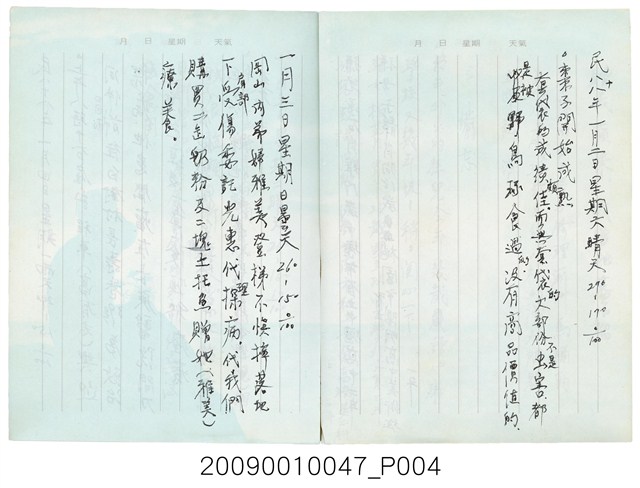 月 日 星期 天氣
民八十八年一月二日星期六晴天 29°-17°0/00
。棗子開始成熟
套袋的成績很佳。而無套袋的大部份不是虫害。都
是被野鳥啄食過的沒有商品價值的。
月 日 星期 天氣
一月三日星期日曇天 26°-15°0/00
岡山 弟婦雅美登梯不慎摔落地
下肩部受傷委託光惠代理探病。代我們
購買二 奶粉及二塊土托魚贈她(雅美)
療養食。
20090010047_P004